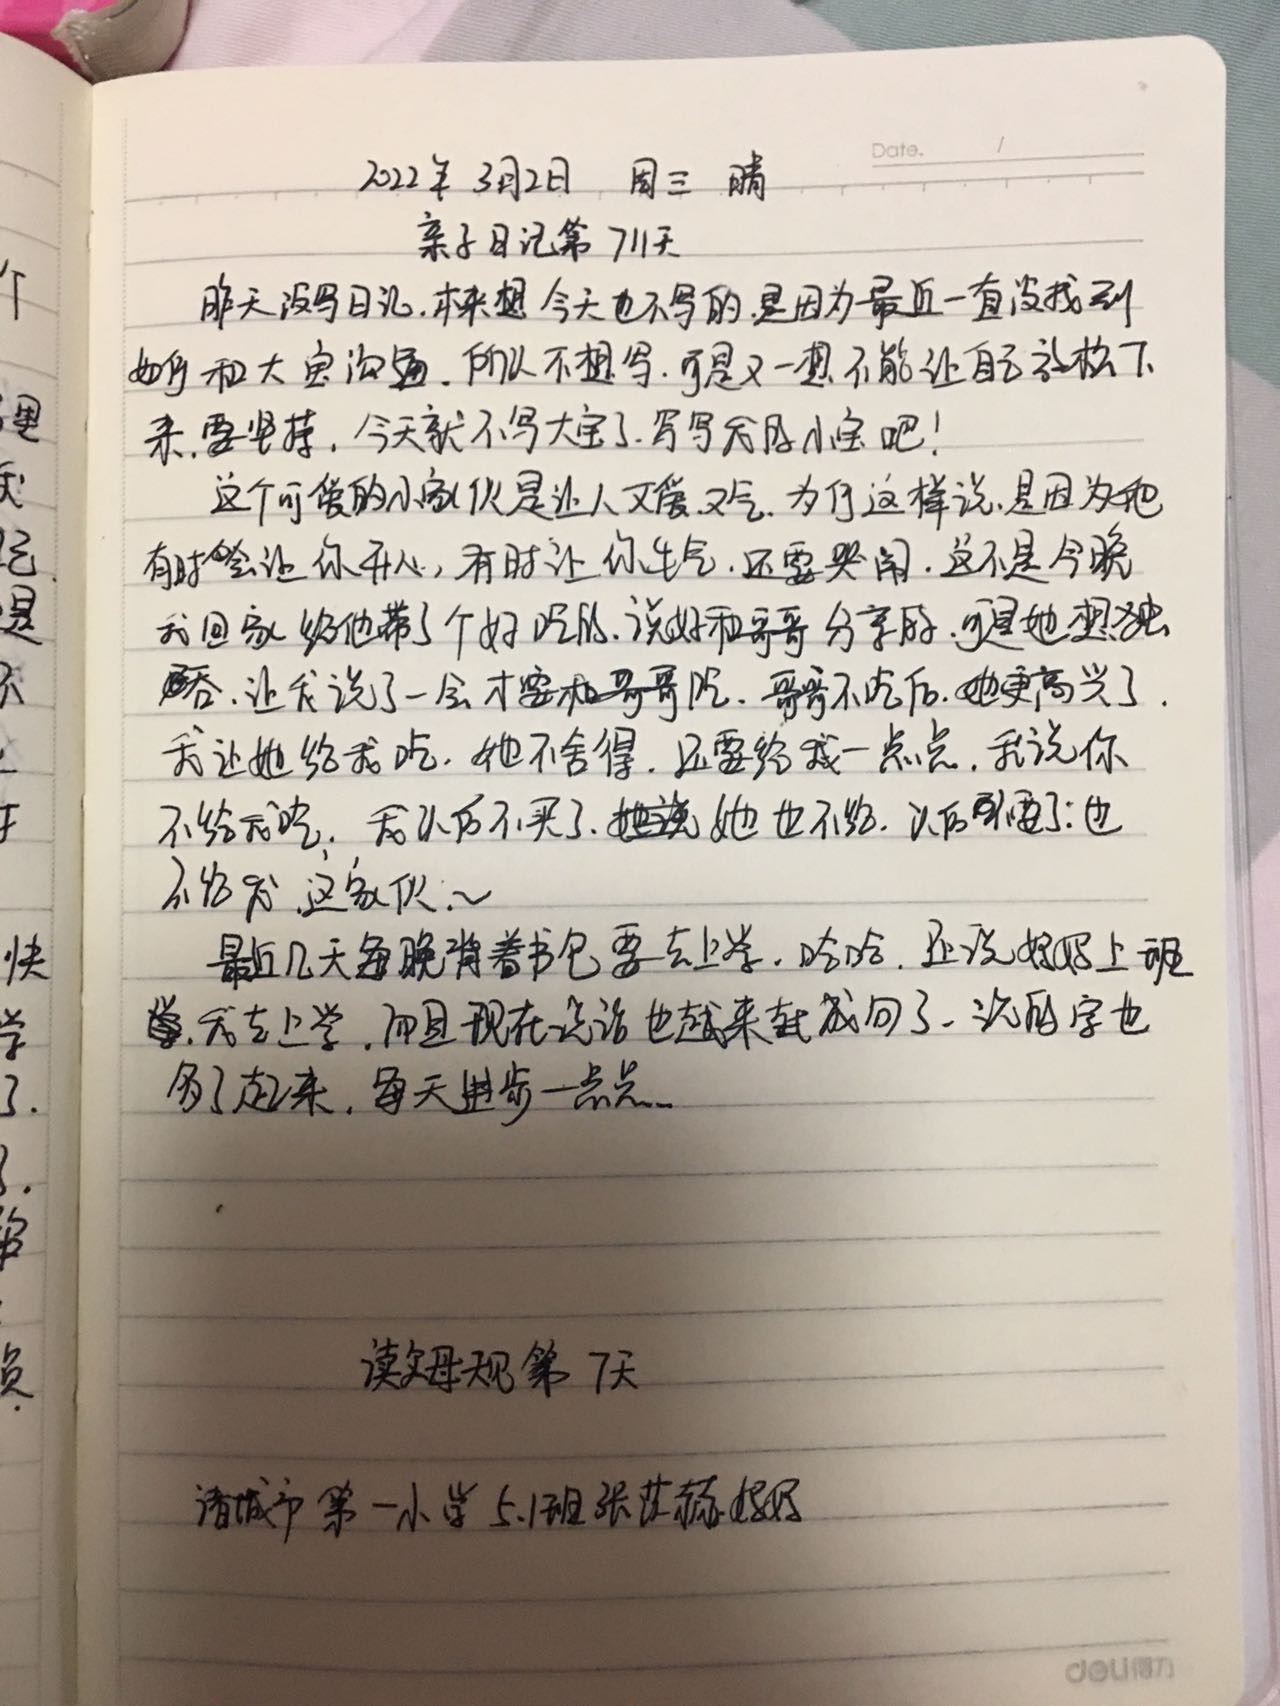 Date. /
2022年 3月2日 周三 晴
亲子日记第 711天
昨天没写日记.本来想今天也不写的.是因为最近一直没找到
如何和大宝沟通.所以不想写.可是又一想不能让自己放松下
来.要坚持.今天就不写大宝了.写写我的小宝吧!
这个可爱的小家伙是让人又爱又气.为何这样说.是因为她
有时会让你开心,有时让你生气.还要哭闹.这不是今晚
我回家给他带了个好吃的.说好和哥哥分享的.可是她想独
吞.让我说了一会才要和哥哥吃.哥哥不吃后.她更高兴了.
我让她给我吃.她不舍得.还要给我一点点.我说你
不给我吃.我以后不买了.她说她也不给.以后不要了.也
不给我.这家伙.~
最近几天每晚背着书包要去上学.哈哈.还说妈妈上班
我去上学.而且现在说话也越来越成句了.说的字也
多了起来.每天进步一点点...
读父母规第 7天
诸城市第一小学 5.1班张 赫妈妈
deli得力
个
理
我
是
不
快
学
了.
了.
员.